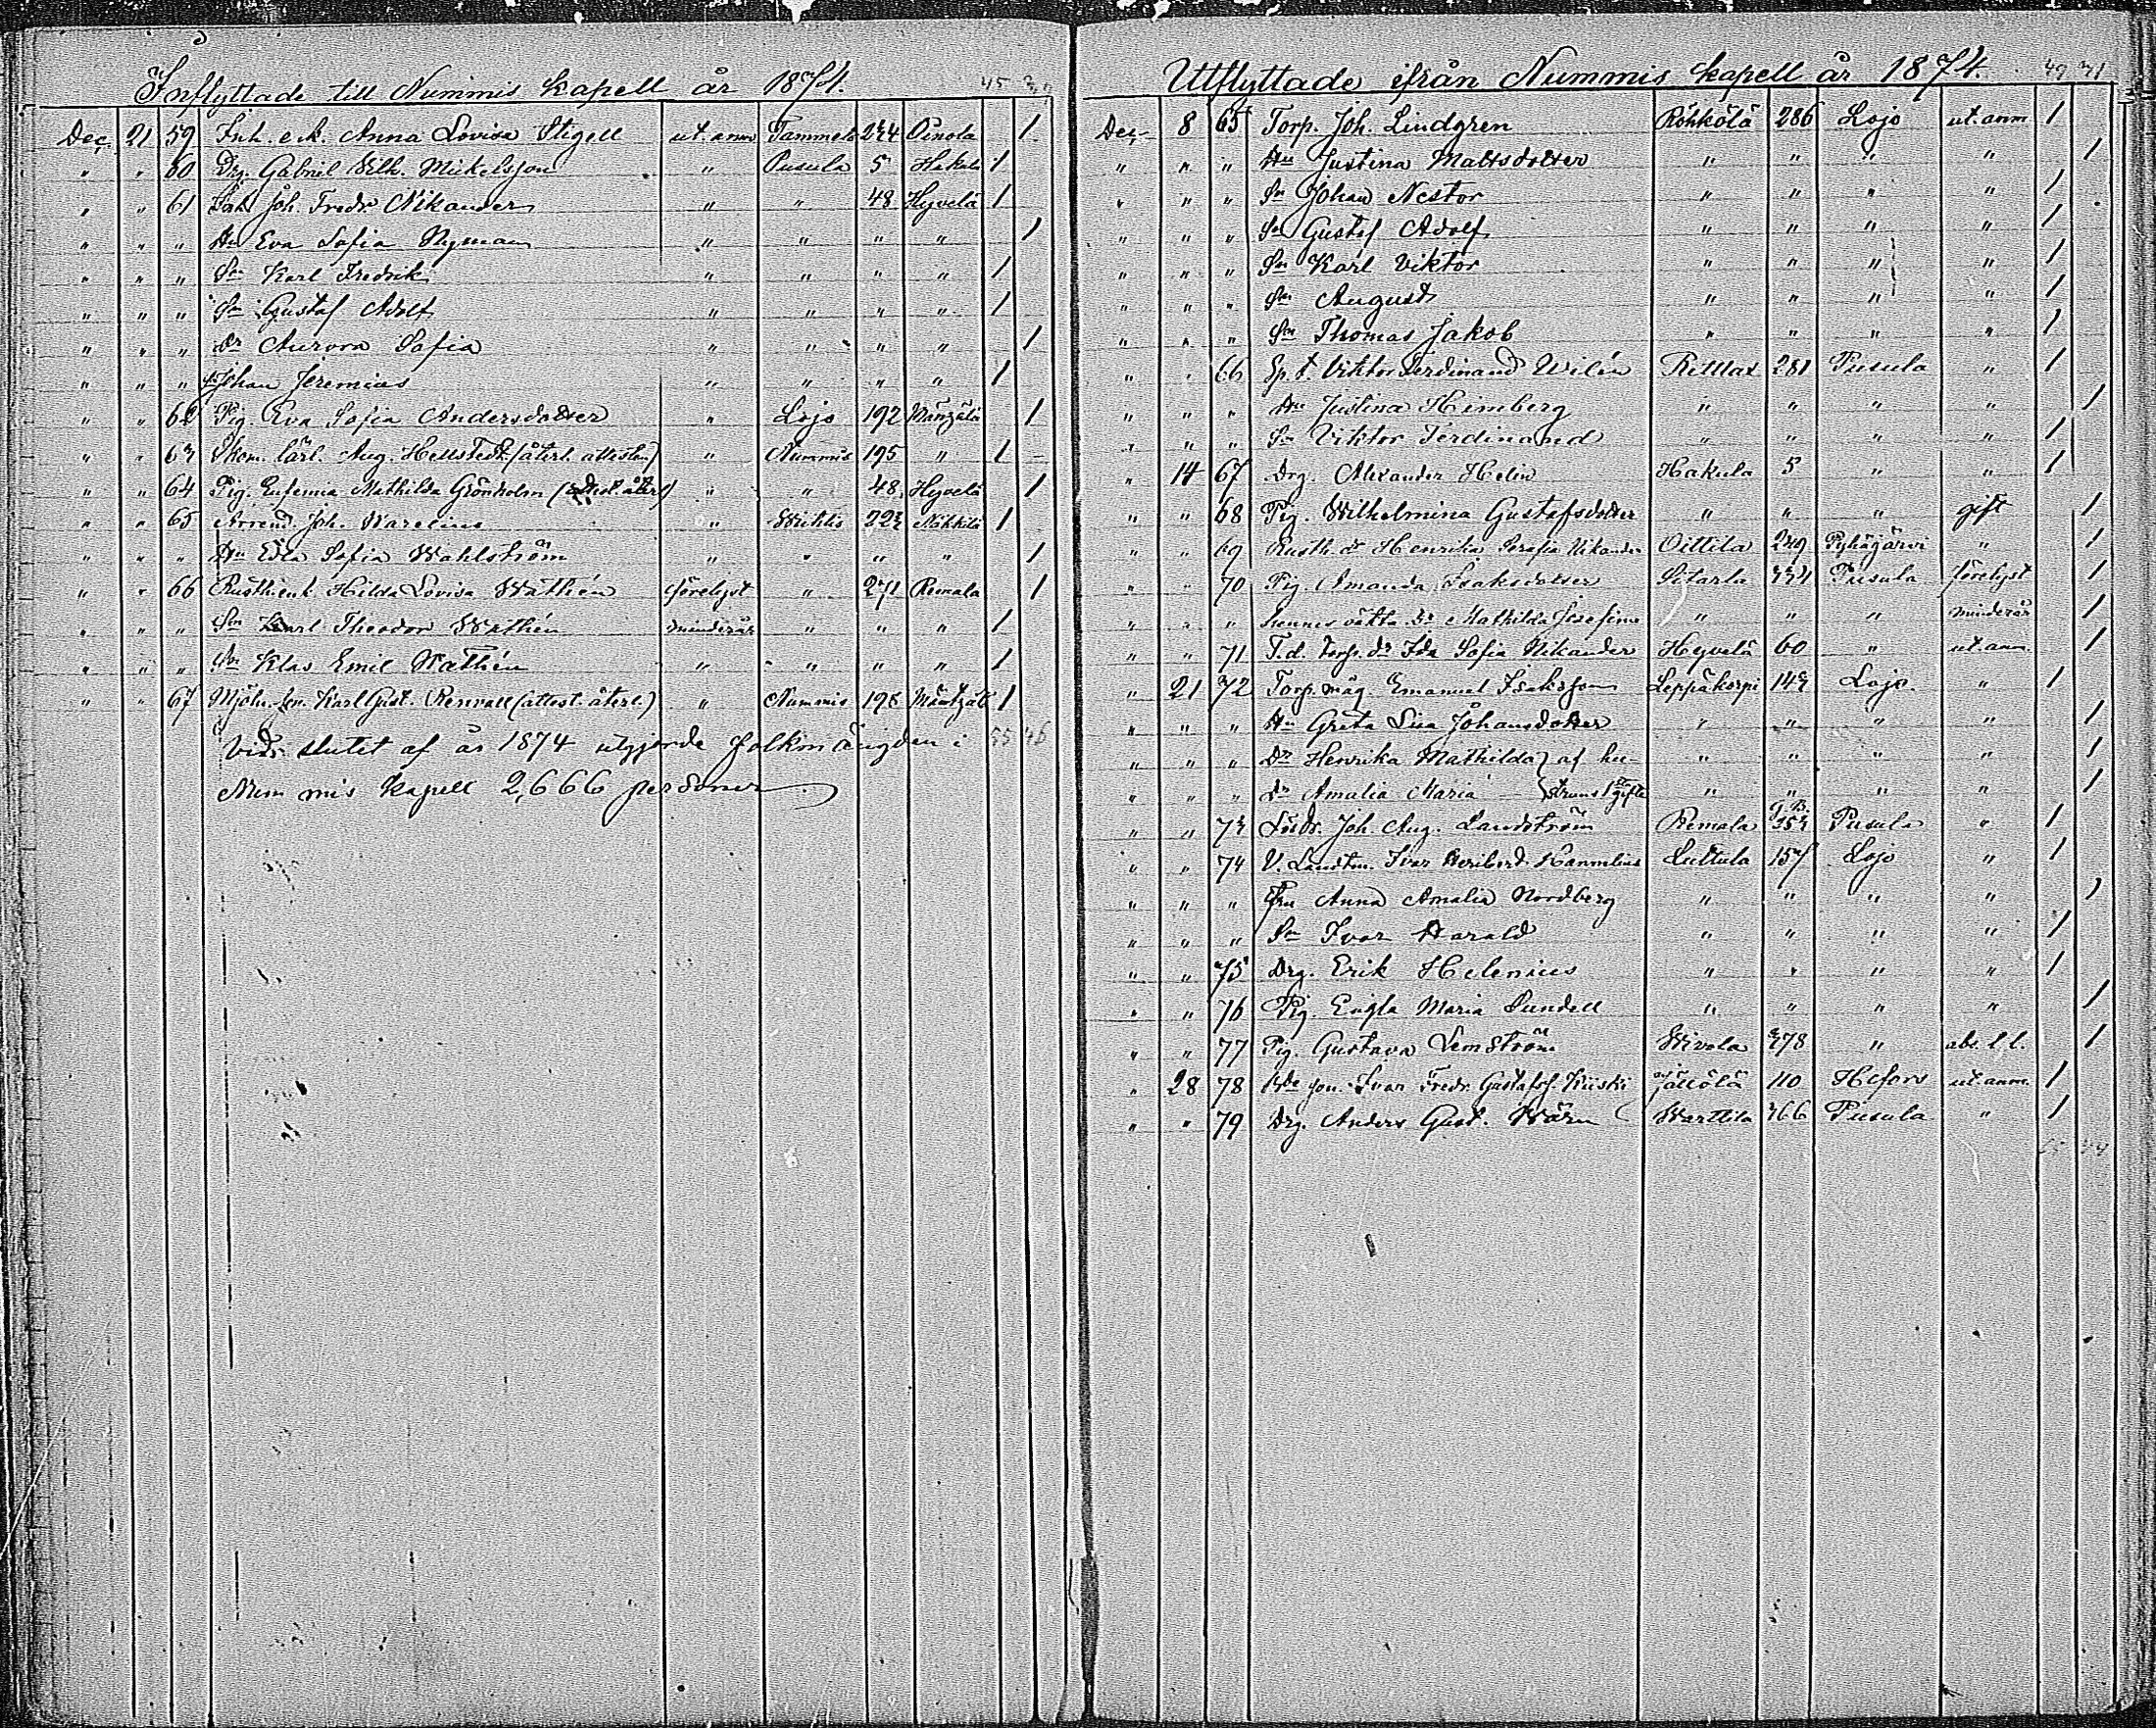 Inflyttade till Nummis kapell år 1874. 45
Dec. 21 59 Inh. e.k. Anna Lovisa Stigell ut. anm Tammela 234 Oinola 1
" " 60 Drg. Gabriel Wilh. Mickelsson " Pusula 5 Hakula 1
" " 61 Joh. Fredr. Nikander " " 48 Hyvelä 1
" " " Hu Eva Sofia Nyman " " " " 1
" " " Sn Karl Fredrik " " " " 1
" " " Sn Gustaf Adolf " " " " 1
" " " Dr Aurora Sofia " " " " 1
" " " Johan Jeremias " " " " 1
" " 62 Pig. Eva Sofia Andersdotter " Lojo 192 1
" " 63 Skom. lärl. Aug. Hellstedt (återl. attesten) " Nummis 195 " 1
" " 64 Pig. Eufemia Mathilda Grönholm (attest. återl) " " 48 Hyvelä 1
" " 65 Arrend. Joh. Warelius " Wichtis 223 1
" " " Hu Edla Sofia Wahlström " " " " 1
" " 66 Rusth. enk. Hilda Lovisa Wathén förelyst " 271 Remala 1
" " " Sn Karl Theodor Wathén minderår " " " 1
" " " Sn Klas Emil Wathén " " " " 1
" " 67 Mjöln. sn. Karl Gust. Renvall (attest. återl.) " Nummis 198 1
Vid slutet af år 1874 utgjorde folkmängden i 55 46
Nummis kapell 2,666 personer.
Utflyttade ifrån Nummis kapell år 1874. 49 71
Dec. 8 65 Torp. Joh. Lindgren Röhkölä 286 Lojo ut. anm 1
" " " Hu Justina Mattsdotter " " " " 1
" " " Sn Johan Nestor " " " " 1
" " " Sn Gustaf Adolf " " " " 1
" " " Sn Karl Viktor " " " " 1
" " " Sn August " " " " 1
" " " Sn Thomas Jakob " " " " 1
" " 66 Sp. t. Viktor Ferdinand Wilén 281 Pusula " 1
" " " Hu Justina Himberg " " " " 1
" " " Sn Viktor Ferdinand " " " " 1
" 14 67 Drg. Alexander Helin Hakula 5 " " 1
" " 68 Pig. Wilhelmina Gustafsdotter " " " gift 1
" " 69 Rusth. dr Henrika Serafia Nikander Oittila 249 Pyhäjärvi " 1
" " 70 Pig. Amanda Isaksdotter Sitarla 334 Pusula förelyst 1
" " " hennes oäkta Dr Mathilda Josefina " " " minderår 1
" " 71 T.d. torp. dr Ida Sofia Nikander Hyvelä 60 " ut. anm. 1
" 21 72 Torp. måg. Emanuel Isaksson Leppäkorpi 143 Lojo " 1
" " " Hu Greta Lisa Johansdotter " " " " 1
" " " Dr Henrika Mathilda } af hu- " " " " 1
" " " Dr Amalia Maria } struns 1sta gifte " " " " 1
" " 73 Lösdr. Joh. Aug. Landström Remala G.B. 353 Pusula " 1
" " 74 V. Länsm. Ivar Heribert Hannelius Luttula 157 Lojo " 1
" " " Fru Anna Amalia Nordberg " " " " 1
" " " Sn Ivar Harald " " " " 1
" " 75 Drg. Erik Helenius " " " " 1
" " 76 Pig. Engla Maria Sundell " " " " 1
" " 77 Pig. Gustava Lemström Wivola 378 " abs. l. l. 1
" 28 78 Bde son. Ivar Fredr. Gustafss. Kiiski Jättölä 110 H:fors ut. anm. 1
" " 79 Drg. Anders Gust. Wärn Warttila 366 Pusula " 1